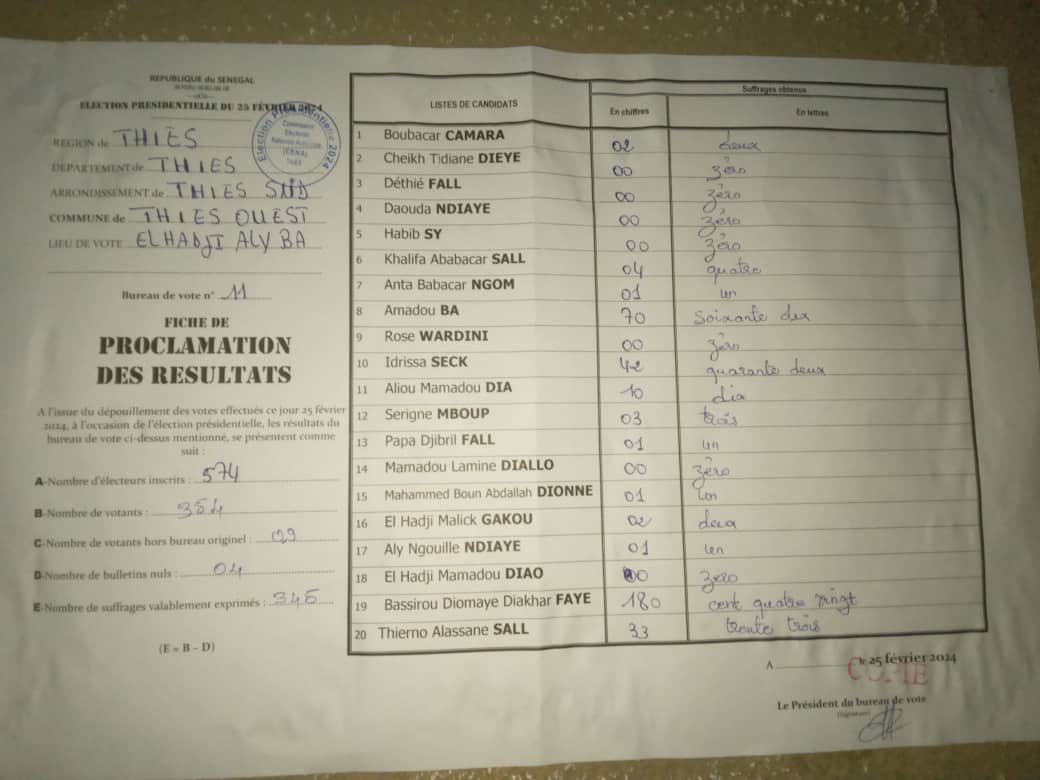 REPUBLIQUE du SENEGAL
ELECTION PRESIDENTIELLE DU 25 FÉVRIER 2024
Election Présidentielle 2024
Commission
Electorale
Nationale Autonome
(CENA)
THIES
REGION de THIÈS
DEPARTEMENT de THIES
ARRONDISSEMENT de THIES SUD
COMMUNE de THIES OUEST
LIEU DE VOTE ELHADJI ALY BA
Bureau de vote n° 11
FICHE DE
PROCLAMATION
DES RESULTATS
A l'issue du dépouillement des votes effectués ce jour 25 février
2024, à l'occasion de l'élection présidentielle, les résultats du
bureau de vote ci-dessus mentionné, se présentent comme
suit :
A-Nombre d'électeurs inscrits : 574
B-Nombre de votants : 354
C-Nombre de votants hors bureau originel : 09
D-Nombre de bulletins nuls : 04
E-Nombre de suffrages valablement exprimés :
(E = B - D)
LISTES DE CANDIDATS
Suffrages obtenus
En chiffres En lettres
1 Boubacar CAMARA 02 deux
2 Cheikh Tidiane DIEYE 00 zéro
3 Déthié FALL 00 zéro
4 Daouda NDIAYE 00 zéro
5 Habib SY 00 zéro
6 Khalifa Ababacar SALL 04 quatre
7 Anta Babacar NGOM 01 un
8 Amadou BA 70 soixante dix
9 Rose WARDINI 00 zéro
10 Idrissa SECK 42 quarante deux
11 Aliou Mamadou DIA 10 dix
12 Serigne MBOUP 03 trois
13 Papa Djibril FALL 01 un
14 Mamadou Lamine DIALLO 00 zéro
15 Mahammed Boun Abdallah DIONNE 01 un
16 El Hadji Malick GAKOU 02 deux
17 Aly Ngouille NDIAYE 01 un
18 El Hadji Mamadou DIAO 00 zéro
19 Bassirou Diomaye Diakhar FAYE 180 cent quatre vingt
20 Thierno Alassane SALL 33 trente trois
A le 25 février 2024
COPIE
Le Président du bureau de vote
(Signature)